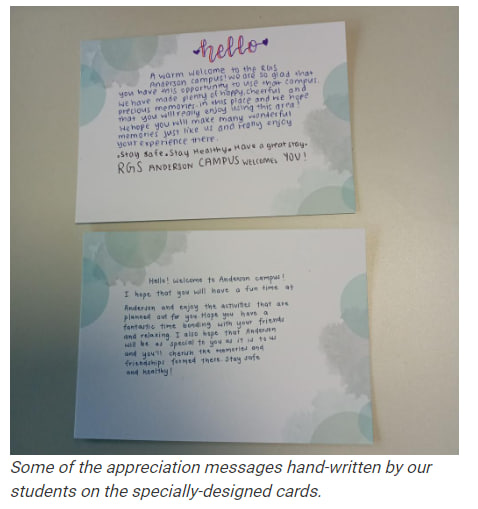 hello
A warm welcome to the RGS
Anderson campus! we are so glad that
you have this opportunity to use that campus.
We have made plenty of happy, cheerful and
precious memories in this place and we hope
that you will really enjoy using this area!
We hope you will make many wonderful
memories just like us and really enjoy
your experience there.
•Stay safe•Stay Healthy• Have a great stay•
RGS ANDERSON CAMPUS WELCOMES YOU!
Hello! Welcome to Anderson campus!
I hope that you will have a fun time at
Anderson and enjoy the activities that are
planned out for you. Hope you have a
fantastic time bonding with your friends
and relaxing. I also hope that Anderson
will be as special to you as it is to us
and you'll cherish the memories and
friendships formed there. Stay safe
and healthy!
Some of the appreciation messages hand-written by our
students on the specially-designed cards.